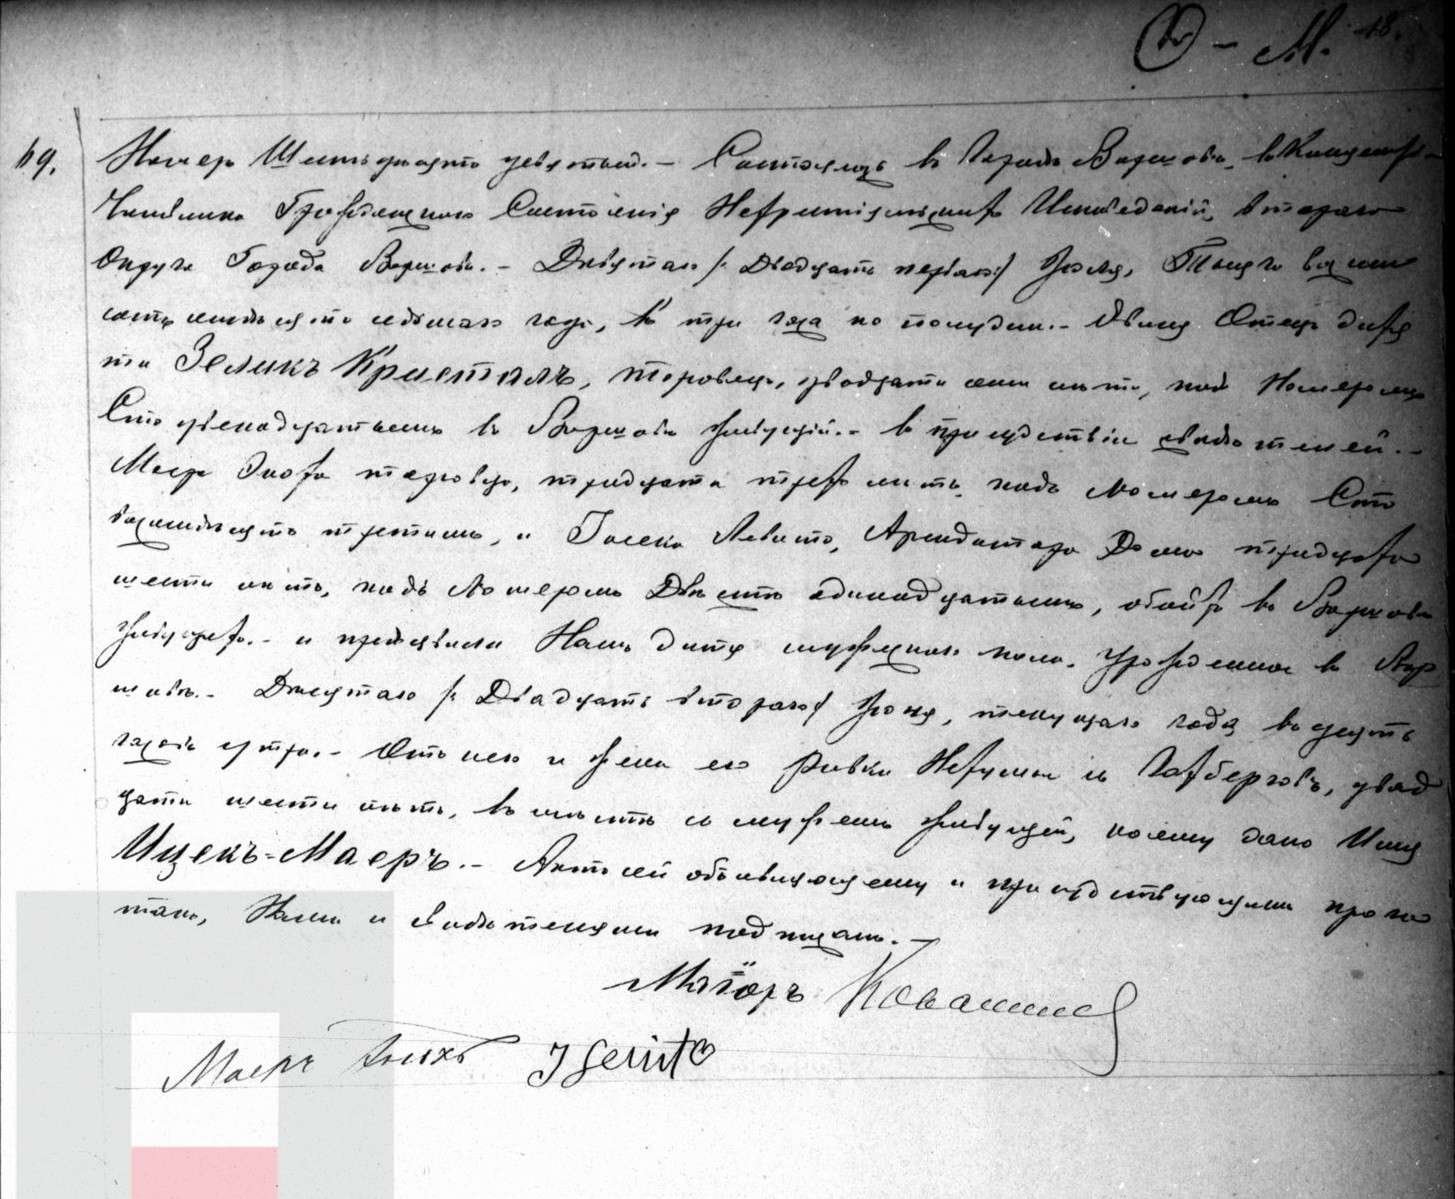 М. 18.
69. Номеръ Шестьдесятъ девятый. – Состоялось въ Городѣ Варшавѣ, въ Канцеляріи
Чиновника Гражданскаго Состоянія Нехристіанскихъ Исповѣданій, втораго
Округа Города Варшавы. – Девятаго /: Двадцать перваго :/ Іюля, Тысяча восемь
сотъ седьмаго года, въ три часа по полудни. – Явился Отецъ дитя
ти Зеликъ Кристалъ, торговецъ, двадцати семи лѣтъ, подъ Номеромъ
Сто двенадцатымъ въ Варшавѣ живущій. – въ присутствіи свидѣтелей. –
Маеръ торговца, тридцати трехъ лѣтъ, подъ Номеромъ Сто
восемьдесятъ третимъ, и Іосека Левитъ, Арендатора Дома тридцати
шести лѣтъ, подъ Номеромъ Двѣстѣ одинадцатымъ, обойхъ въ Варшавѣ
живущихъ. – и предъявилъ Намъ дитя мужескаго пола. урожденное въ Вар
шавѣ. – /: Двадцать втораго :/ Іюня, текущаго года въ десять
часовъ утра. – Отъ него и жены его Ривки Нехумы изъ Гольдберговъ, двад
цати шести лѣтъ, въ мѣстѣ съ мужемъ живущей, коему дано Имя
Ицекъ-Маеръ. – Актъ сей объявляющему и присутствующимъ прочи
танъ, Нами и свидѣтелями подписанъ. –
Маіоръ
Маеръ
J Lewit